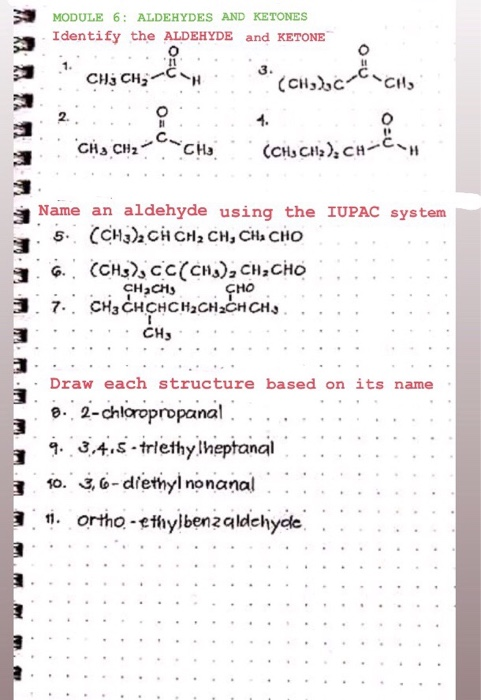 MODULE 6: ALDEHYDES AND KETONES
Identify the ALDEHYDE and KETONE
1.
O
CH3 CH2-C-H
2.
O
CH3 CH2-C-CH3
3.
O
(CH3)3C-C-CH3
4.
O
(CH3CH2)2CH-C-H
Name an aldehyde using the IUPAC system
5. (CH3)2CHCH2CH2CH2CHO
6. (CH3)3CC(CH3)2CH2CHO
CH2CH3 CHO
7. CH3CHCHCH2CH2CHCH3
CH3
Draw each structure based on its name
8. 2-chloropropanal
9. 3,4,5-triethylheptanal
10. 3,6-diethylnonanal
11. ortho-ethylbenzaldehyde